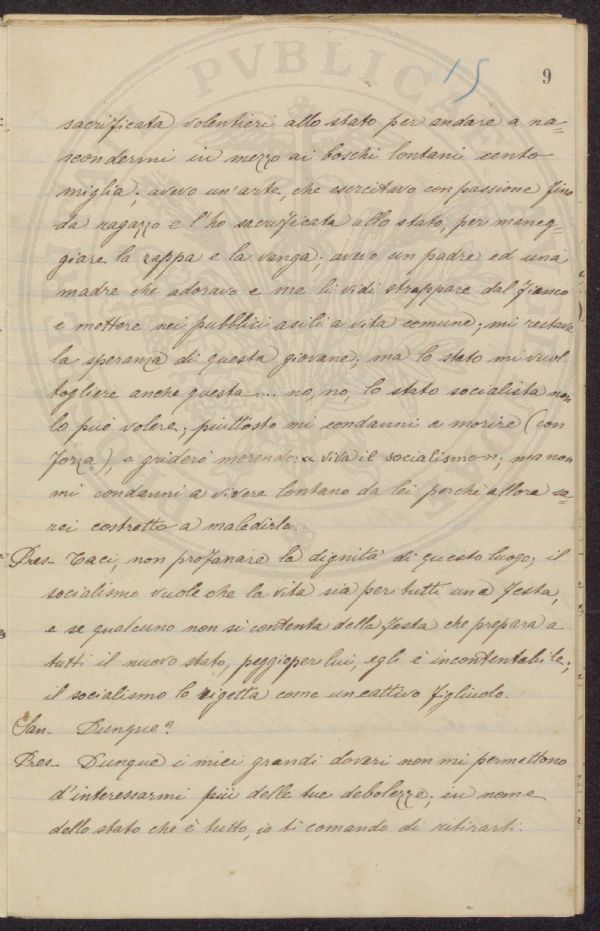 PVBLICA
15
9
sacrificata volentieri allo stato per andare a na=
scondermi in mezzo ai boschi lontani cento
miglia; avevo un'arte, che esercitavo con passione fino
da ragazzo e l'ho sacrificata allo stato, per maneg=
giare la zappa e la vanga; avevo un padre ed una
madre che adoravo e me li vidi strappare dal fianco
e mettere nei pubblici asili a vita comune; mi restava
la speranza di questa giovane; ma lo stato mi vuol
togliere anche questa .... no, no, lo stato socialista non
lo può volere; piuttosto mi condanni a morire (con
forza), e griderò morendo: « viva il socialismo »; ma non
mi condanni a vivere lontano da lei perchè allora sa=
rei costretto a maledirla.
Pres- Taci, non profanare la dignità di questo luogo; il
socialismo vuole che la vita sia per tutti una festa,
e se qualcuno non si contenta della festa che prepara a
tutti il nuovo stato, peggio per lui, egli è incontentabile;
il socialismo lo rigetta come un cattivo figliuolo.
San- Dunque?
Pres- Dunque i miei grandi doveri non mi permettono
d'interessarmi più delle tue debolezze; in nome
dello stato che è tutto, io ti comando di ritirarti.